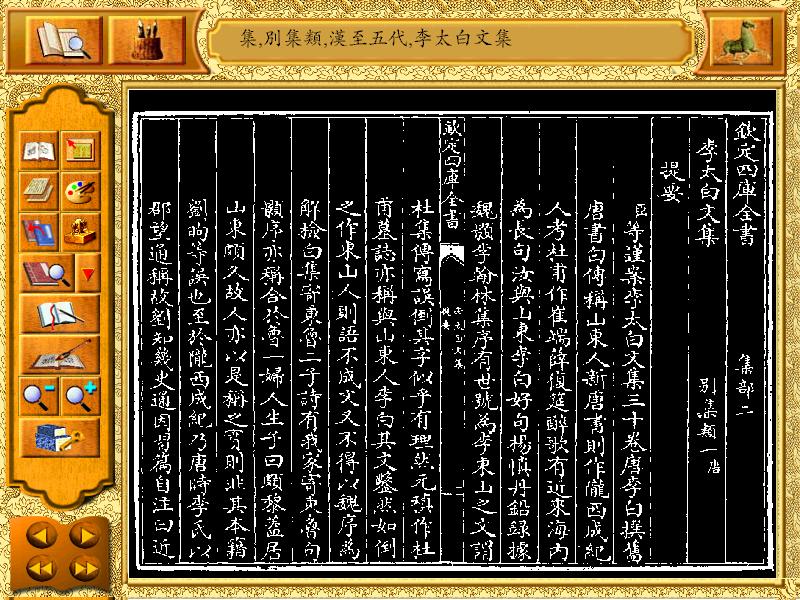 集,別集類,漢至五代,李太白文集
欽定四庫全書 集部二
李太白文集 別集類一唐
提要
臣等謹案李太白文集三十卷唐李白撰舊
唐書白傳稱山東人新唐書則作隴西成紀
人考杜甫作崔端薛復筵醉歌有近來海內
為長句汝與山東李白好句楊慎丹鉛録據
魏顥李翰林集序有世號為李東山之文謂
欽定四庫全書
李太白文集
提要
一
杜集傳寫誤倒其字似乎有理然元稹作杜
甫墓誌亦稱與山東人李白其文鑿然如倒
之作東山人則語不成文又不得以魏序為
解檢白集寄東魯二子詩有我家寄東魯句
顥序亦稱合於魯一婦人生子曰頗黎蓋居
山東頗久故人亦以是稱之實則非其本籍
劉昫等誤也至於隴西成紀乃唐時李氏以
郡望通稱故劉知幾史通因習篇自注曰近